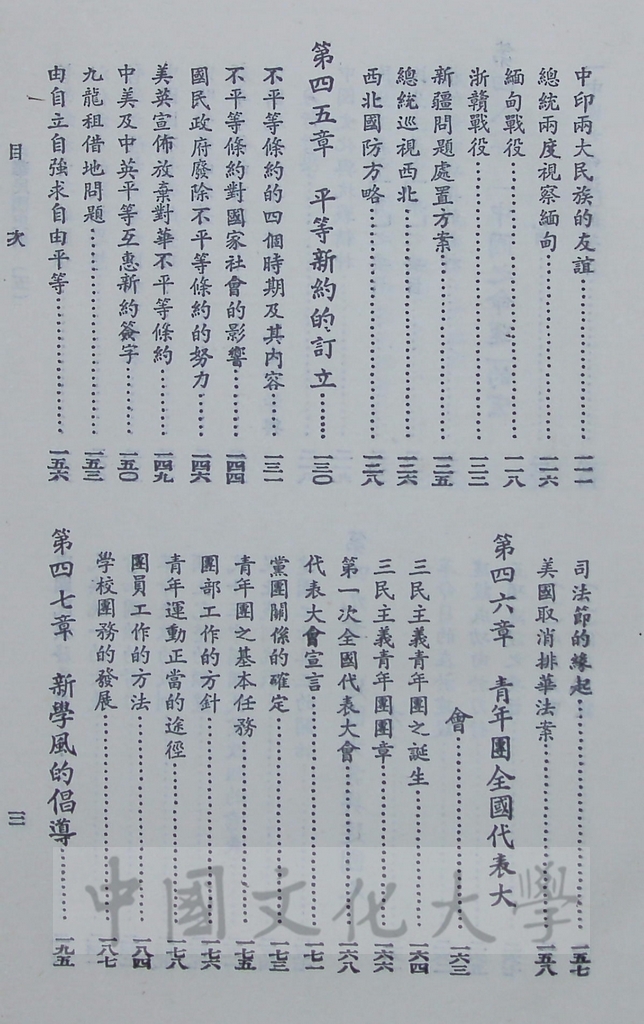 中印兩大民族的友誼……一一一
總統兩度視察緬甸……一一六
緬甸戰役……一一八
浙贛戰役……一二二
新疆問題處置方案……一二五
總統巡視西北……一二六
西北國防方略……一二八
第四五章　平等新約的訂立……一三〇
不平等條約的四個時期及其內容……一三一
不平等條約對國家社會的影響……一四四
國民政府廢除不平等條約的努力……一四六
美英宣佈放棄對華不平等條約……一四九
中美及中英平等互惠新約簽字……一五〇
九龍租借地問題……一五三
由自立自強求自由平等……一五六
司法節的緣起……一五七
美國取消排華法案……一五八
第四六章　青年團全國代表大
會……一六三
三民主義青年團之誕生……一六四
三民主義青年團團章……一六六
第一次全國代表大會……一六八
代表大會宣言……一七一
黨團關係的確定……一七三
青年團之基本任務……一七五
團部工作的方針……一七六
青年運動正當的途徑……一七八
團員工作的方法……一八四
學校團務的發展……一八七
第四七章　新學風的倡導……一九五
目次
三
中國文化大學